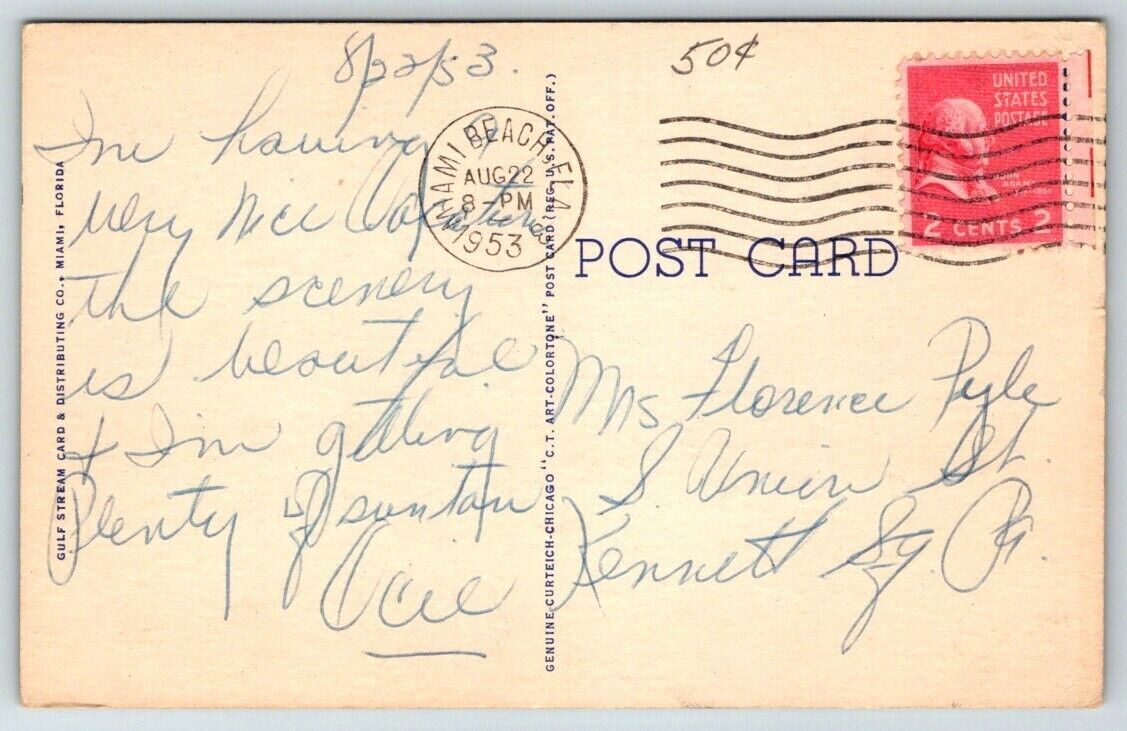 8/22/53.
50¢
Im having a
very nice Vacation
the scenery
is beautiful
& Im getting
Plenty of suntan
MIAMI BEACH, FLA.
AUG 22
8 - PM
1953
UNITED
STATES
POSTAGE
JOHN
ADAMS
2 CENTS 2
POST CARD
Mrs Florence Pyle
S Union St.
Kennett Sq. Pa.
GULF STREAM CARD & DISTRIBUTING CO., MIAMI, FLORIDA
GENUINE CURTEICH-CHICAGO "C.T. ART-COLORTONE" POST CARD (REG. U.S. PAT. OFF.)